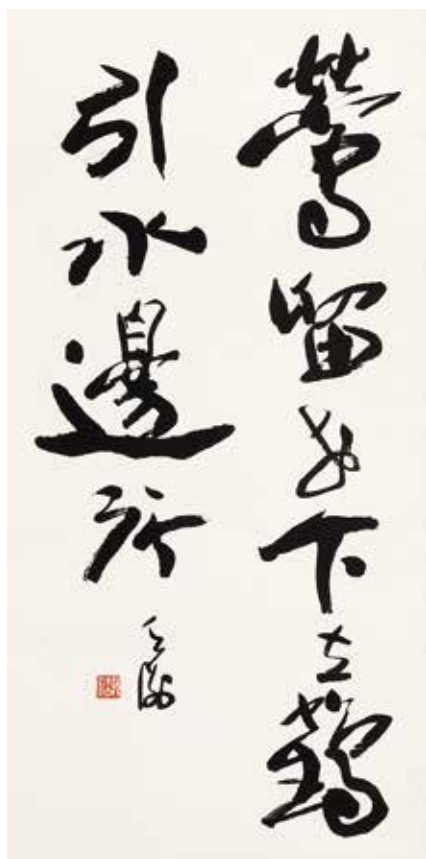 鶯留花下立鶴
引水邊行